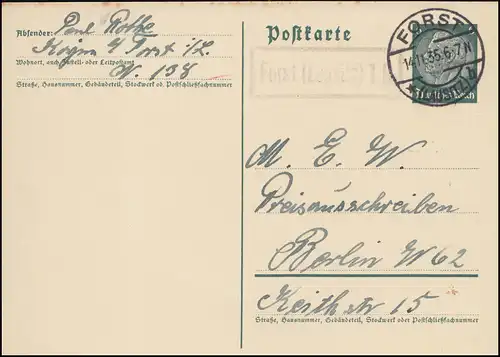 Absender: Paul Rothe
Forst i/L.
N. 138
Wohnort, auch Zustell- oder Leitpostamt
Straße, Hausnummer, Gebäudeteil, Stockwerk od. Postschließfachnummer
Postkarte
FORST
14.11.35.6-7N
Forst (Lausitz)
M. E. W.
Preisausschreiben
Berlin W 62
Keithstr 15
Straße, Hausnummer, Gebäudeteil, Stockwerk oder Postschließfachnummer